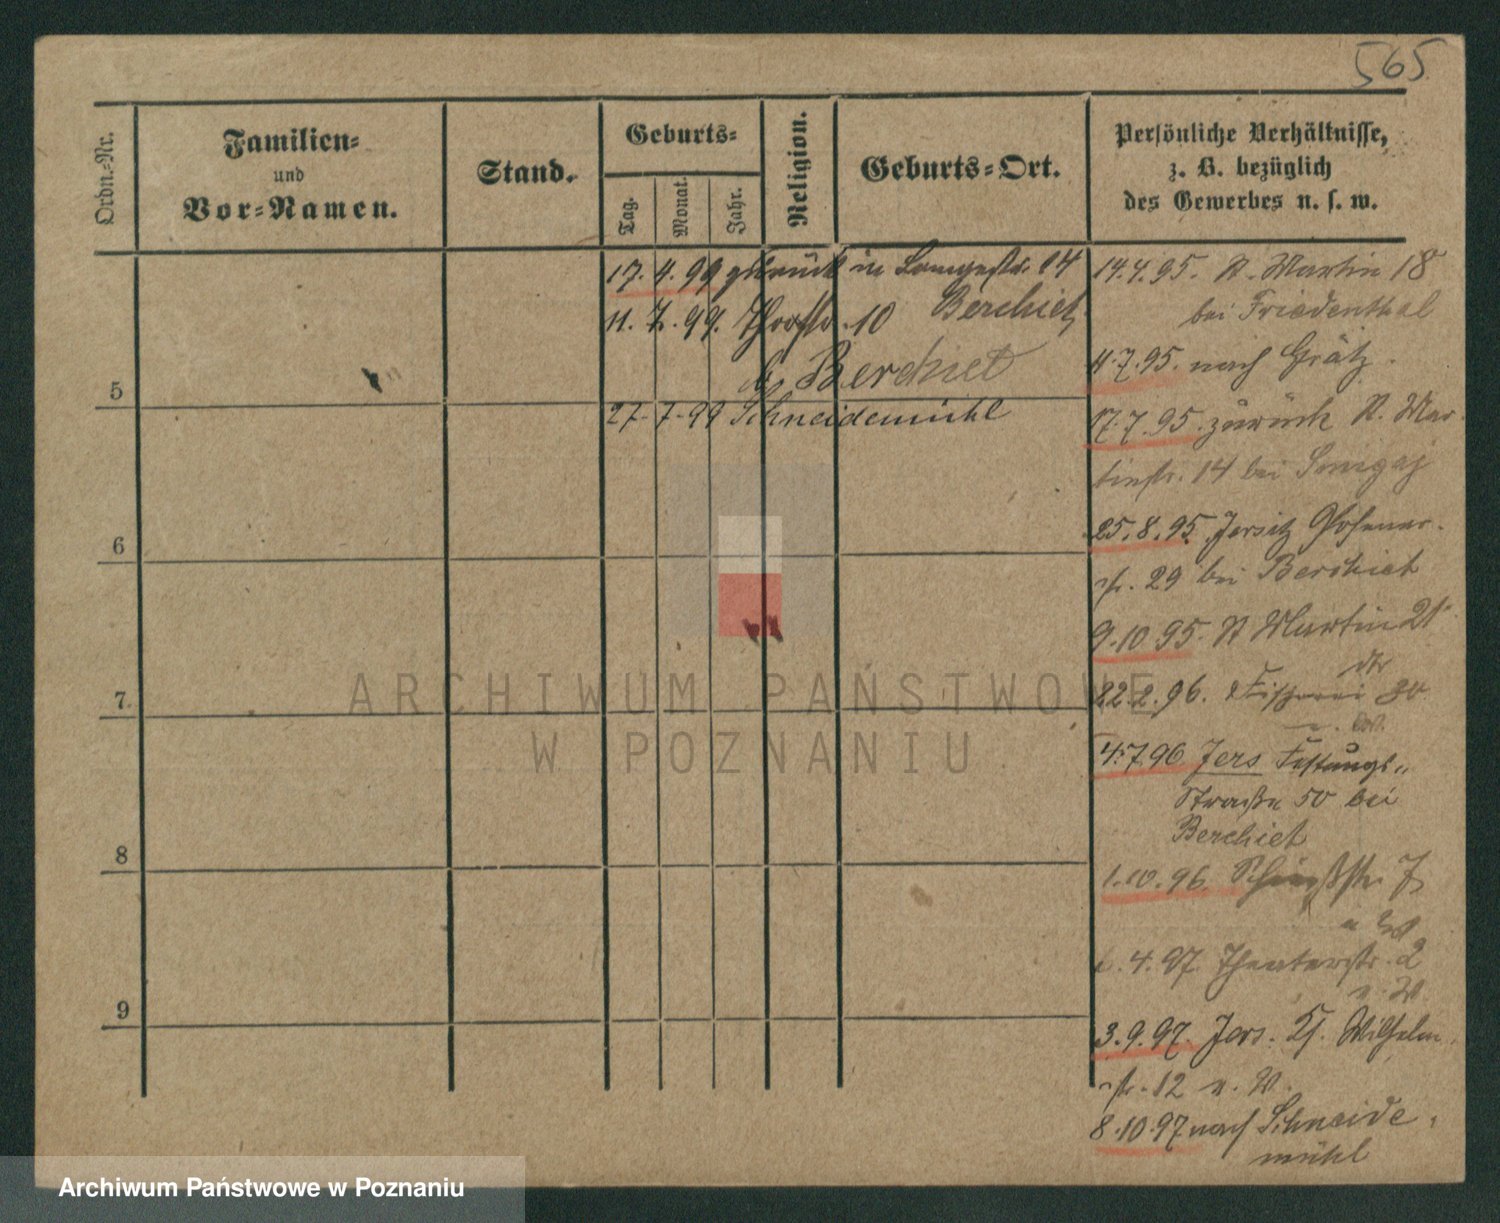 565
Ordn.-Nr.
Familien-
und
Vor-Namen.
Stand.
Geburts-
Tag.
Monat.
Jahr.
Religion.
Geburts-Ort.
Persönliche Verhältnisse,
z. B. bezüglich
des Gewerbes u. s. w.
17. 4. 99 zurück in Langestr. 14
Berchiet
11. 7. 99. 10
b. Berchiet
27. 7. 99 Schneidemühl
5
6
7
8
9
14.4.95. St. Martin 18
bei Friedenthal
11.7.95. nach Grätz.
17.7.95. zurück St. Mar-
tinstr. 14 bei
25.8.95. Jersitz Posener-
str. 29 bei Berchiet
9.10.95. St Martin 21
22.2.96. Fischerei 30
4.7.96 Jers Festungs-
Straße 50 bei
Berchiet
1.10.96. 7
4.97. Theaterstr. 2
u. W.
3.9.97. Jers. K. Wilhelm
str. 12 u. W.
8.10.97 nach Schneide-
mühl
ARCHIWUM PAŃSTWOWE
W POZNANIU
Archiwum Państwowe w Poznaniu